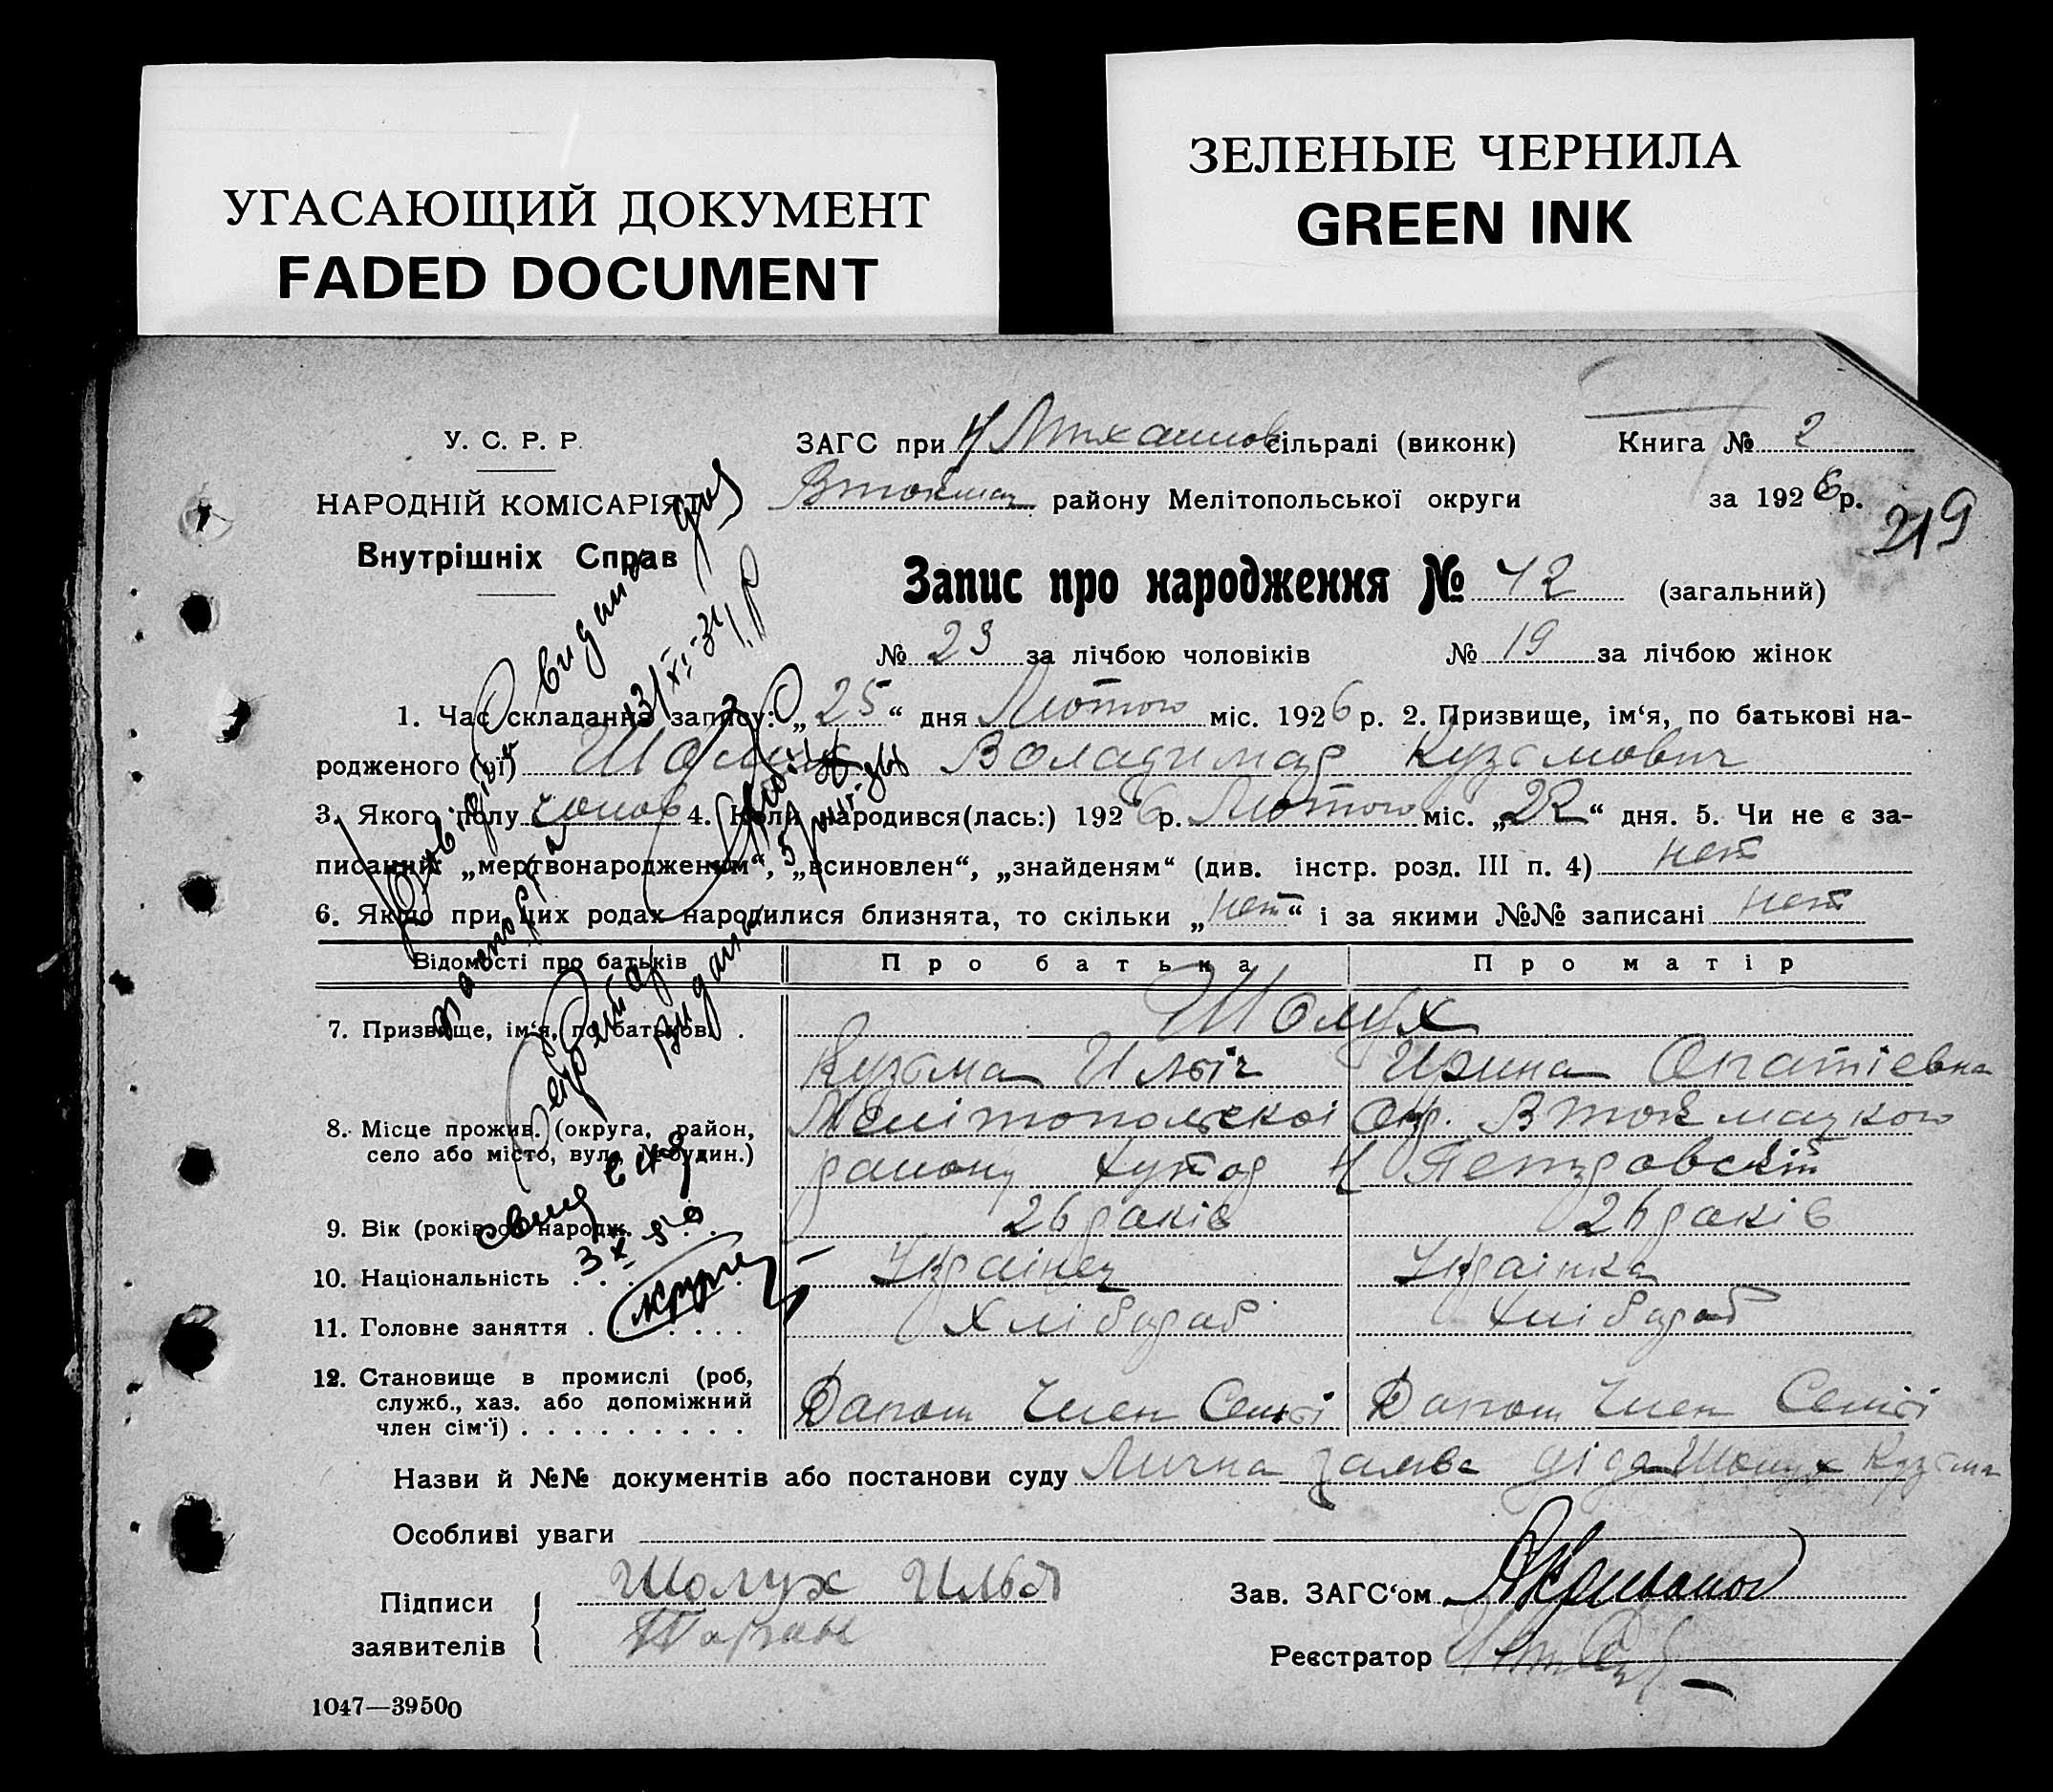 УГАСАЮЩИЙ ДОКУМЕНТ
FADED DOCUMENT
ЗЕЛЕНЫЕ ЧЕРНИЛА
GREEN INK
У. С. Р. Р.
НАРОДНІЙ КОМІСАРІЯТ
Внутрішніх Справ
ЗАГС при Н Михайлов сільраді (виконк) Книга № 2
Втокмац району Мелітопольської округи за 1926 р.
219
Запис про народження № 42 (загальний)
№ 23 за лічбою чоловіків № 19 за лічбою жінок
1. Час складання запису: „25“ дня Лютого міс. 1926 р. 2. Призвище, ім‘я, по батькові на-
родженого (ої) Шолух Воладимар Кузьмович
3. Якого полу чолов 4. Коли народився(лась:) 1926 р. Лютого міс. „22“ дня. 5. Чи не є за-
писаний: „мертвонародженим“, „всиновлен“, „знайденям“ (див. інстр. розд. III п. 4) нет
6. Якщо при цих родах народилися близнята, то скільки „нет“ і за якими №№ записані нет
Відомості про батьків Про батька Про матір
7. Призвище, ім‘я, по батькові . Шолух
Кузьма Ильіч Ирина Опатіевна
8. Місце прожив. (округа, район, Мелітопольскої Окр. Втокмацкого
село або місто, вул., № будин.) району хутор Н Петровскіт
9. Вік (років) од народж. 26 років 26 років
10. Національність Українец Українка
11. Головне заняття Хлібороб Хлібороб
12. Становище в промислі (роб,
служб., хаз. або допоміжний Допом Член Семьї Допом Член Семьї
член сім‘ї)
Назви й №№ документів або постанови суду Лична заява діда Шолух Кузьма
Особливі уваги
Підписи Шолух Илья Зав. ЗАГС‘ом
заявителів Реєстратор
1047—39500